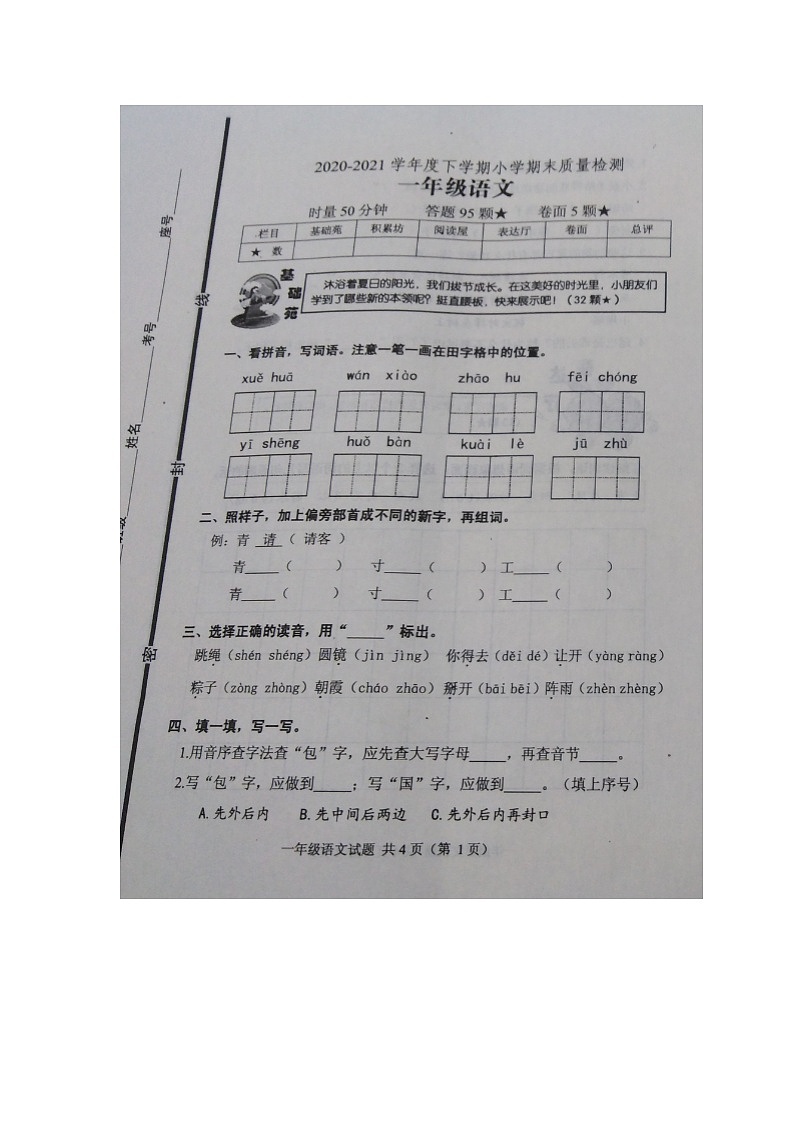 2020-2021 学年度下学期小学期末质量检测
一年级语文
时量 50 分钟 答题 95 颗★ 卷面 5 颗★
栏目 基础苑 积累坊 阅读屋 表达厅 卷面 总评
★ 数
基础苑
沐浴着夏日的阳光，我们拔节成长。在这美好的时光里，小朋友们
学到了哪些新的本领呢？挺直腰板，快来展示吧！（32 颗★）
一、看拼音，写词语。注意一笔一画在田字格中的位置。
xuě huā wán xiào zhāo hu fēi chóng
yī shēng huǒ bàn kuài lè jū zhù
二、照样子，加上偏旁部首成不同的新字，再组词。
例：青 请 （ 请客 ）
青____（ ） 寸____（ ） 工____（ ）
青____（ ） 寸____（ ） 工____（ ）
三、选择正确的读音，用“____”标出。
跳绳（shén shéng）圆镜（jìn jìng） 你得去（děi dé）让开（yàng ràng）
粽子（zòng zhòng）朝霞（cháo zhāo）掰开（bāi bēi）阵雨（zhèn zhèng）
四、填一填，写一写。
1.用音序查字法查“包”字，应先查大写字母____，再查音节____。
2.写“包”字，应做到____；写“国”字，应做到____。（填上序号）
A.先外后内 B.先中间后两边 C.先外后内再封口
一年级语文试题 共 4 页（第 1 页）
座号
考号
姓名
线
封
密